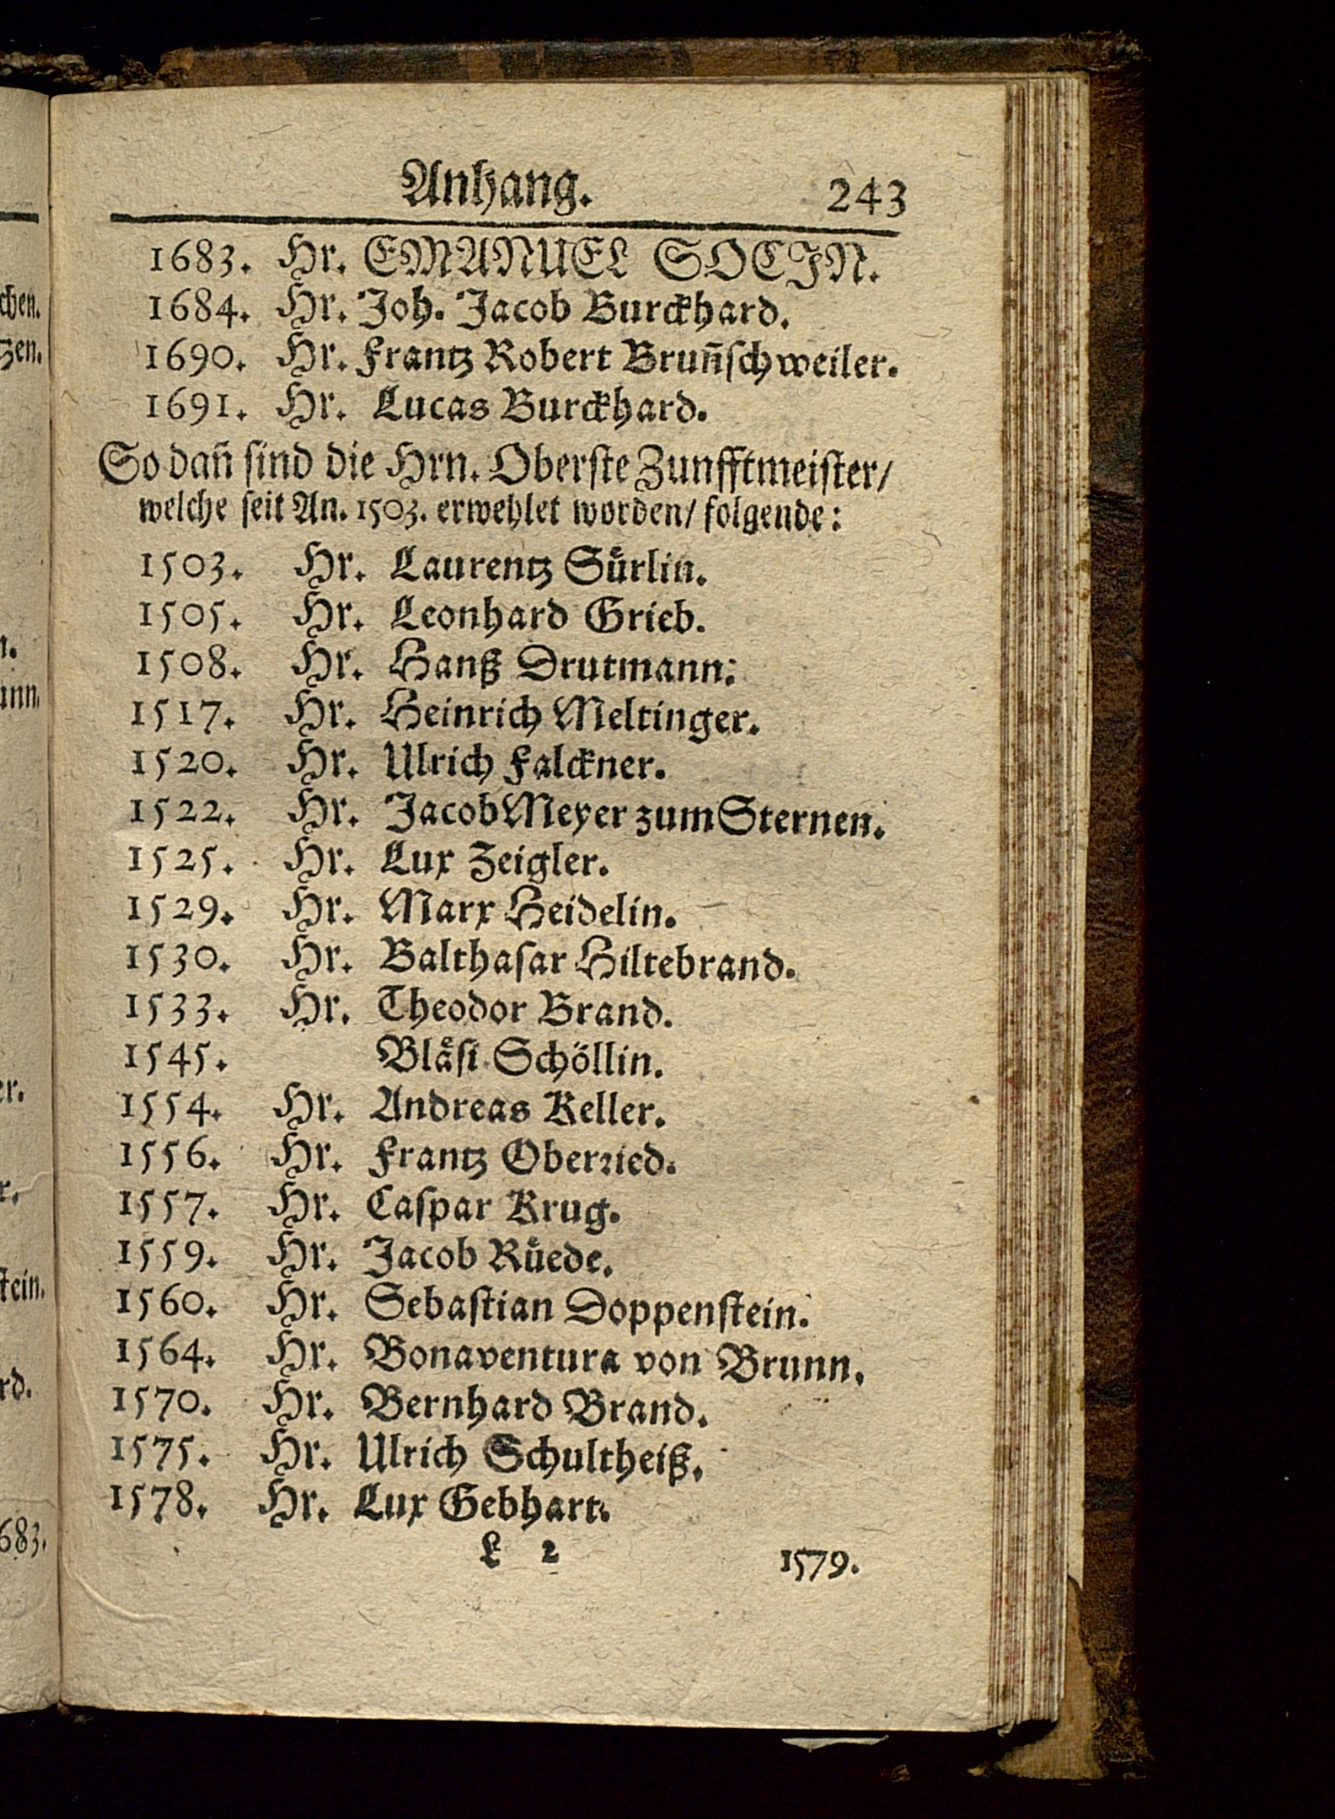 Anhang. 243
1683. Hr. EMANUEL SOCIN.
1684. Hr. Joh. Jacob Burckhard.
1690. Hr. Frantz Robert Brun̄ſchweiler.
1691. Hr. Lucas Burckhard.
So dan̄ ſind die Hrn. Oberſte Zunfftmeiſter/
welche ſeit An. 1503. erwehlet worden/ folgende:
1503. Hr. Laurentz Suͤrlin.
1505. Hr. Leonhard Grieb.
1508. Hr. Hanß Drutmann.
1517. Hr. Heinrich Meltinger.
1520. Hr. Ulrich Falckner.
1522. Hr. Jacob Meyer zum Sternen.
1525. Hr. Lux Zeigler.
1529. Hr. Marx Heidelin.
1530. Hr. Balthaſar Hiltebrand.
1533. Hr. Theodor Brand.
1545. Blaͤſi Schöllin.
1554. Hr. Andreas Keller.
1556. Hr. Frantz Oberꝛied.
1557. Hr. Caſpar Krug.
1559. Hr. Jacob Ruͤede.
1560. Hr. Sebaſtian Doppenſtein.
1564. Hr. Bonaventura von Brunn.
1570. Hr. Bernhard Brand.
1575. Hr. Ulrich Schultheiß.
1578. Hr. Lux Gebhart.
L 2 1579.